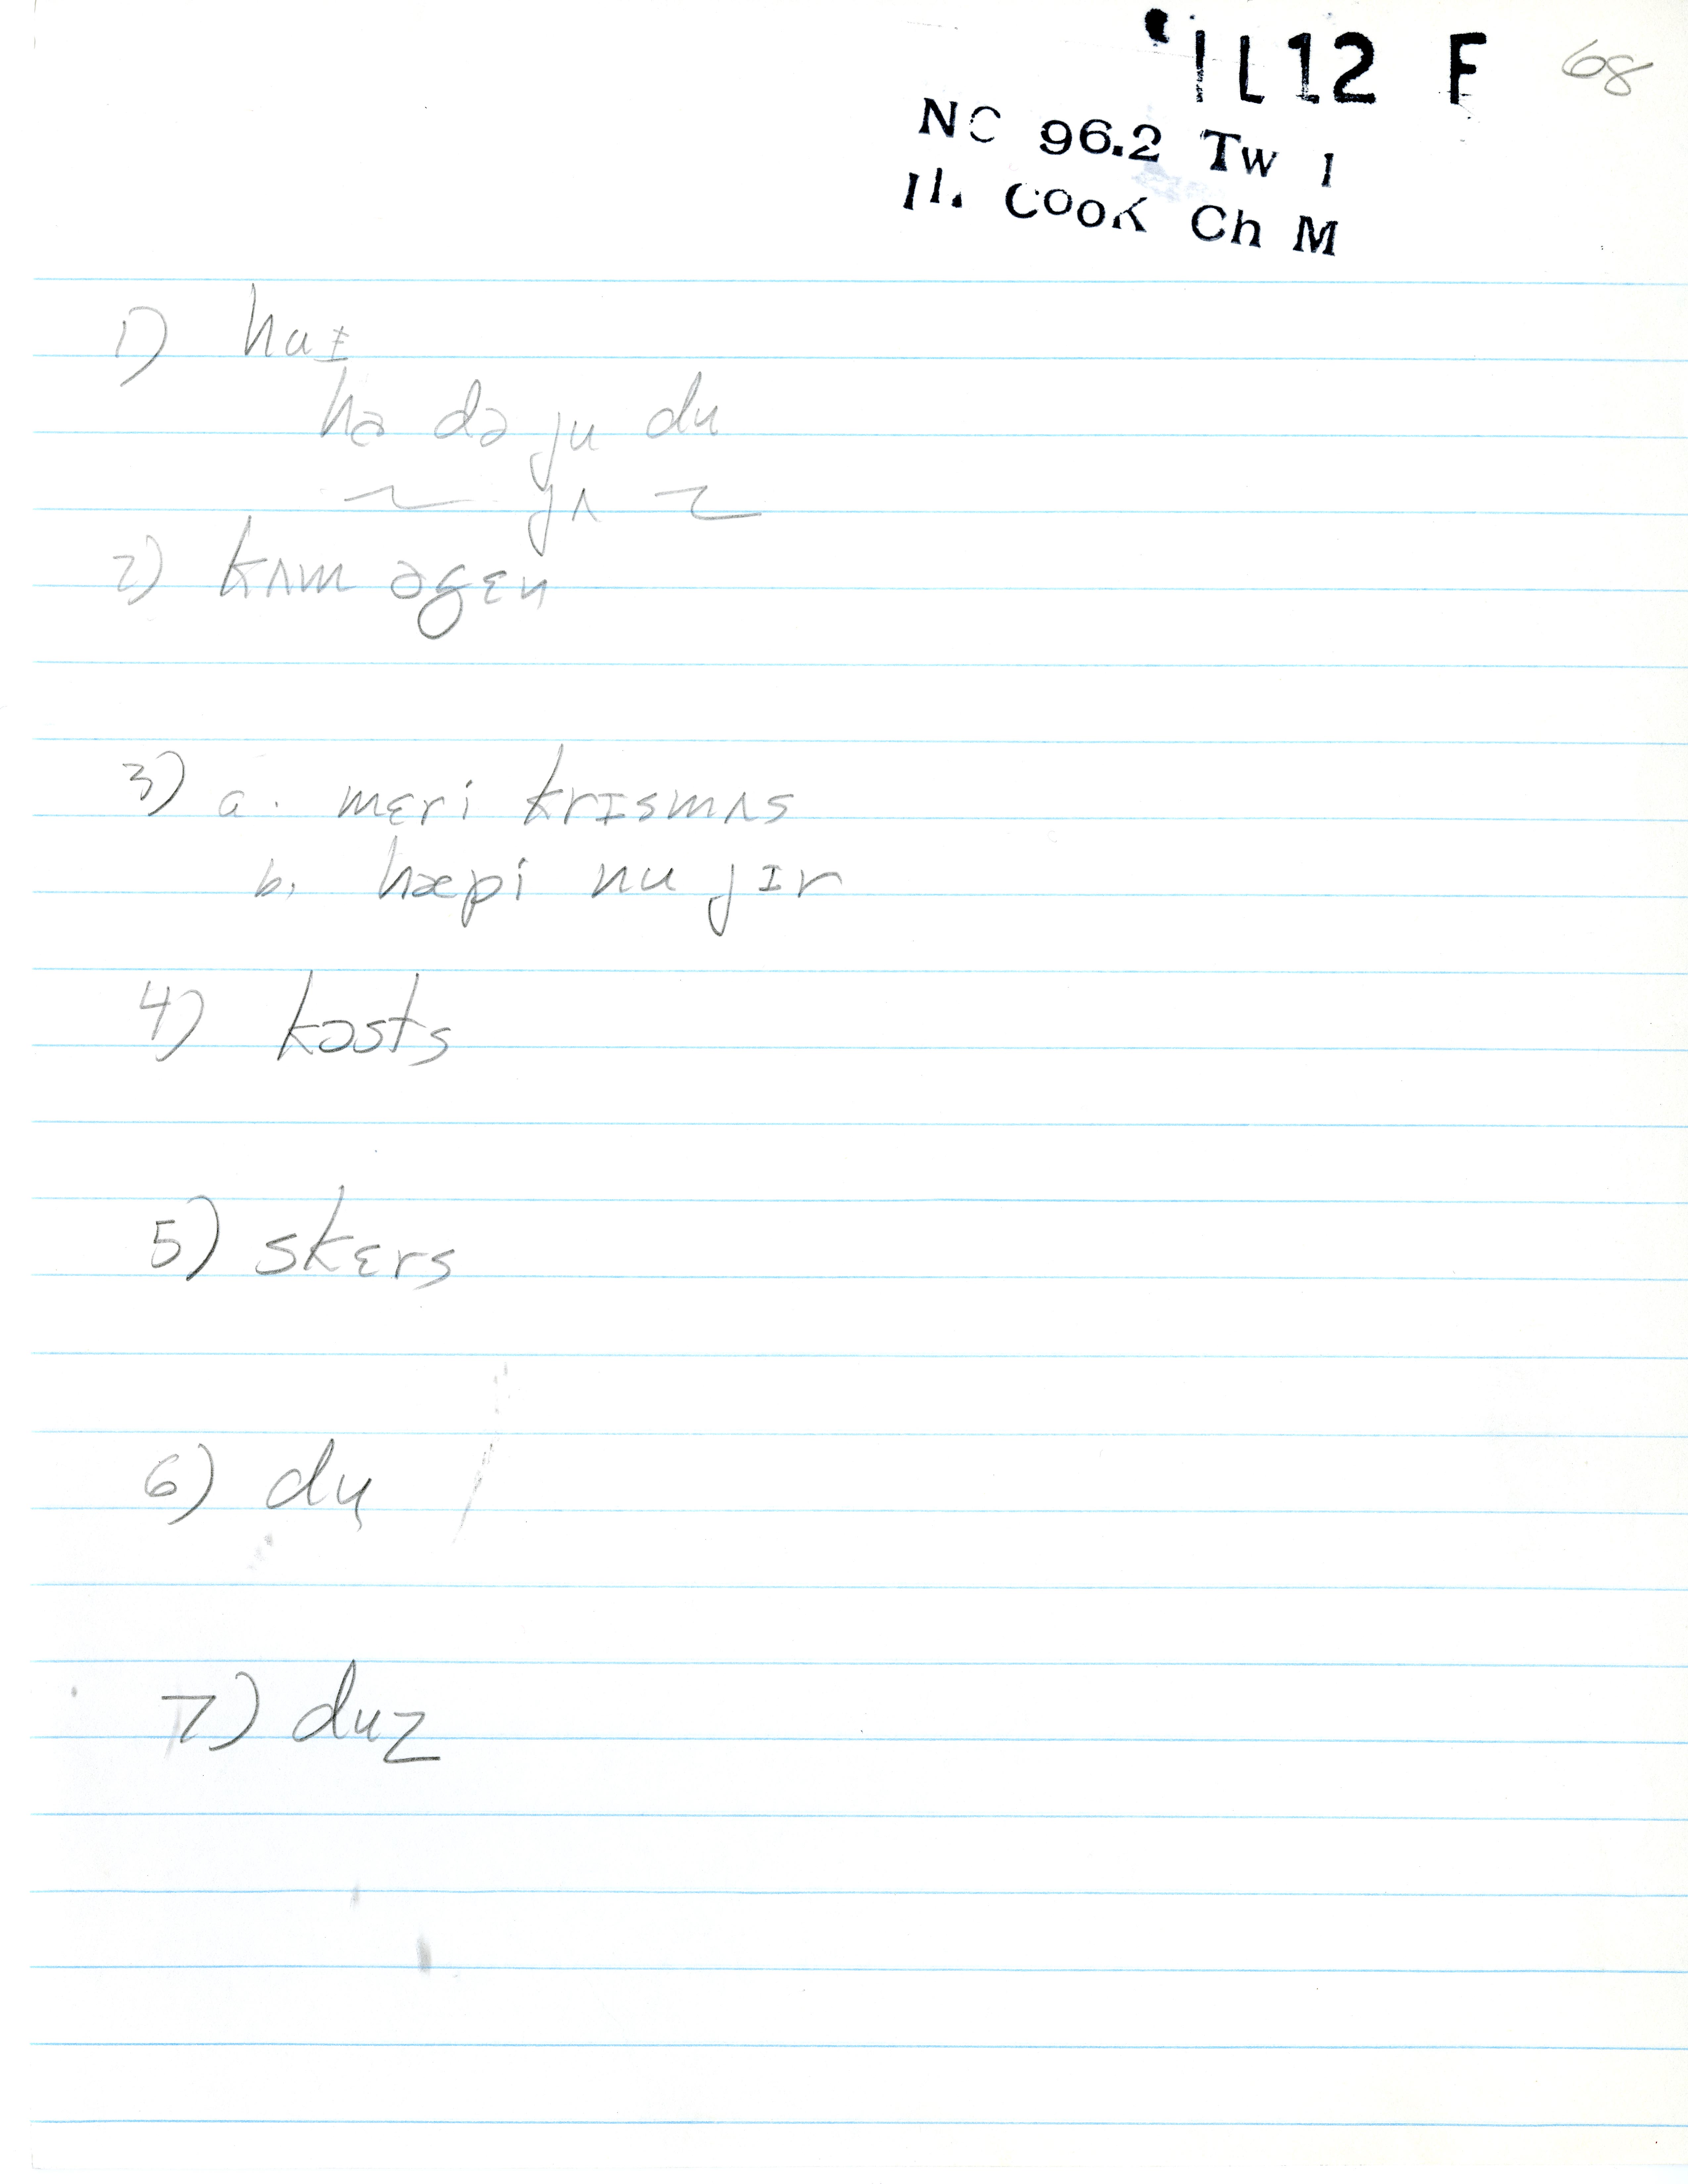 IL12 F 68
NC 96.2 Tw 1
Il. COOK Ch M
1) haɪ
hə də ju du
~ jʌ ~
2) kʌm əgɛn
3) a. mɛri krɪsmʌs
b. hæpi nu jɪr
4) kɔsts
5) skɛrs
6) du
7) duz